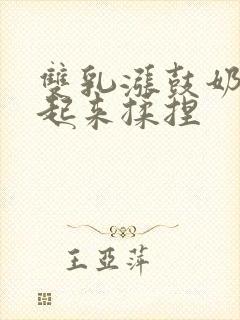 雙乳漲鼓奶
起来揉捏
王亚萍